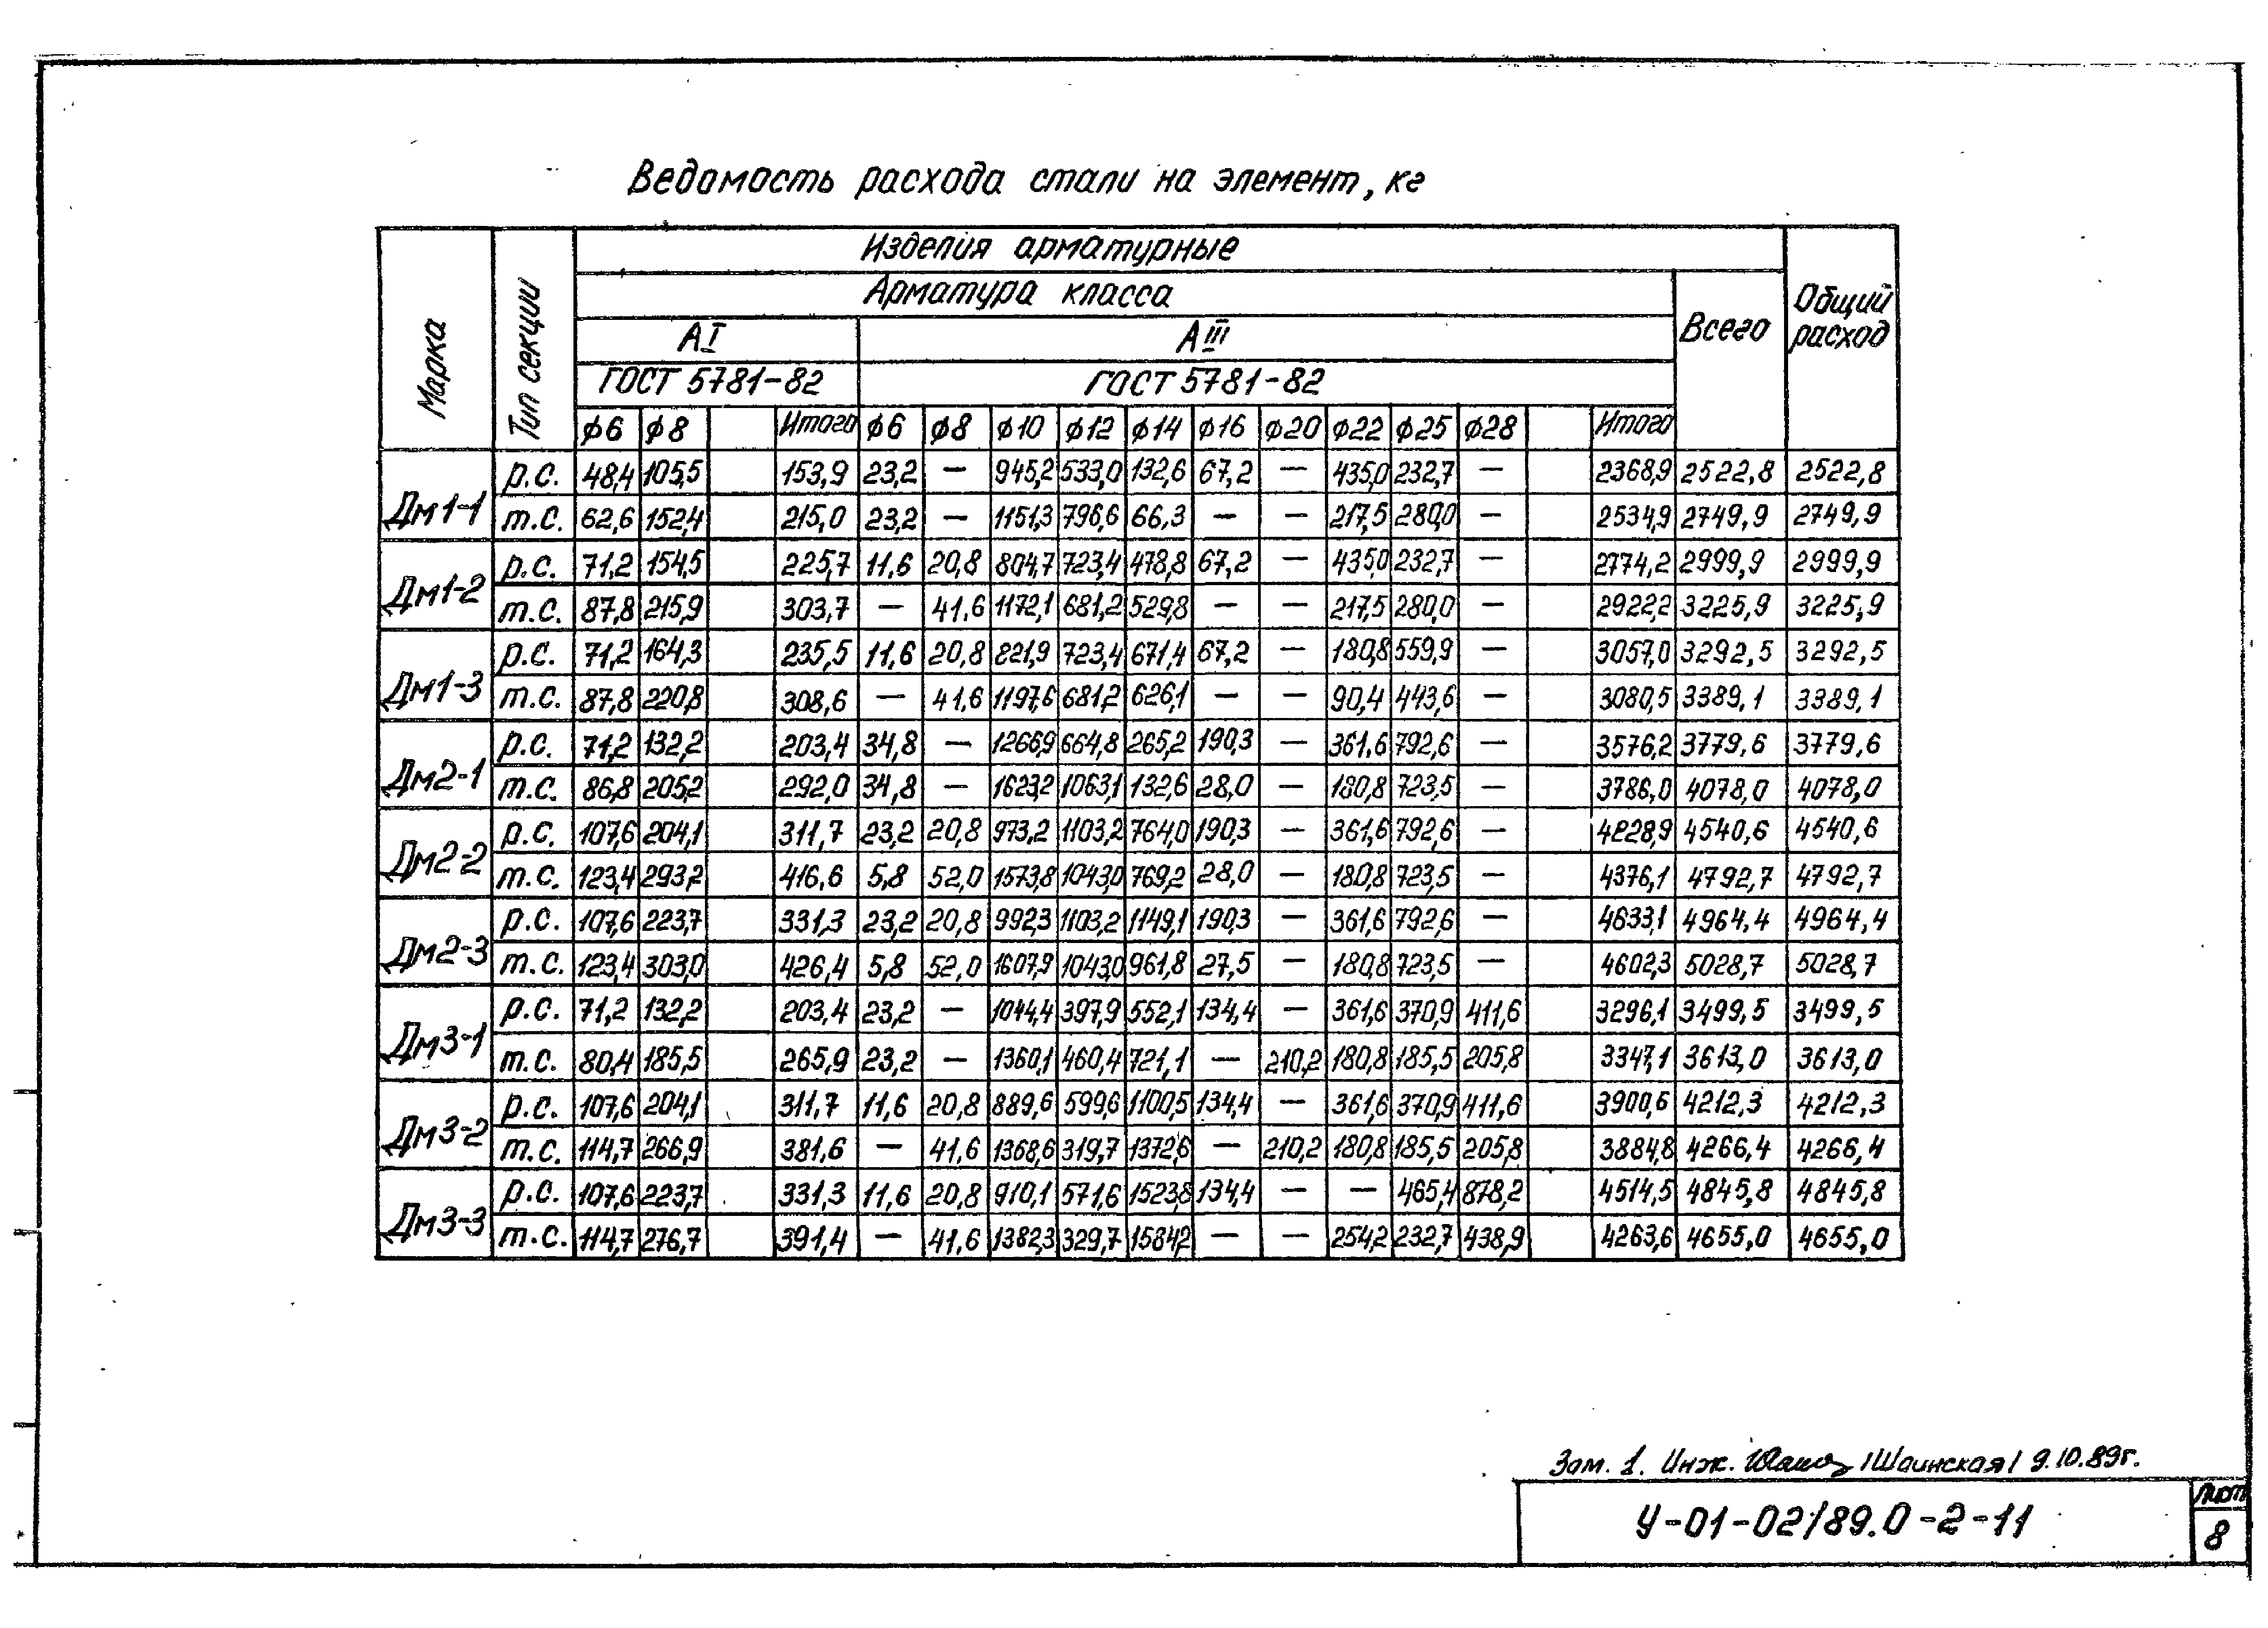 Ведомость расхода стали на элемент, кг
Марка Тип секции Изделия арматурные Общий расход
Арматура класса Всего
АI АIII
ГОСТ 5781-82 ГОСТ 5781-82
ф6 ф8 Итого ф6 ф8 ф10 ф12 ф14 ф16 ф20 ф22 ф25 ф28 Итого
Дм1-1 р.с. 48,4 105,5 153,9 23,2 — 945,2 533,0 132,6 67,2 — 435,0 232,7 — 2368,9 2522,8 2522,8
т.с. 62,6 152,4 215,0 23,2 — 1151,3 796,6 66,3 — — 217,5 280,0 — 2534,9 2749,9 2749,9
Дм1-2 р.с. 71,2 154,5 225,7 11,6 20,8 804,7 723,4 478,8 67,2 — 435,0 232,7 — 2774,2 2999,9 2999,9
т.с. 87,8 215,9 303,7 — 41,6 1172,1 681,2 529,8 — — 217,5 280,0 — 2922,2 3225,9 3225,9
Дм1-3 р.с. 71,2 164,3 235,5 11,6 20,8 821,9 723,4 671,4 67,2 — 180,8 559,9 — 3057,0 3292,5 3292,5
т.с. 87,8 220,8 308,6 — 41,6 1197,6 681,2 626,1 — — 90,4 443,6 — 3080,5 3389,1 3389,1
Дм2-1 р.с. 71,2 132,2 203,4 34,8 — 1266,9 664,8 265,2 190,3 — 361,6 792,6 — 3576,2 3779,6 3779,6
т.с. 86,8 205,2 292,0 34,8 — 1623,2 1063,1 132,6 28,0 — 180,8 723,5 — 3786,0 4078,0 4078,0
Дм2-2 р.с. 107,6 204,1 311,7 23,2 20,8 973,2 1103,2 764,0 190,3 — 361,6 792,6 — 4228,9 4540,6 4540,6
т.с. 123,4 293,2 416,6 5,8 52,0 1573,8 1043,0 769,2 28,0 — 180,8 723,5 — 4376,1 4792,7 4792,7
Дм2-3 р.с. 107,6 223,7 331,3 23,2 20,8 992,3 1103,2 1149,1 190,3 — 361,6 792,6 — 4633,1 4964,4 4964,4
т.с. 123,4 303,0 426,4 5,8 52,0 1607,9 1043,0 961,8 27,5 — 180,8 723,5 — 4602,3 5028,7 5028,7
Дм3-1 р.с. 71,2 132,2 203,4 23,2 — 1044,4 397,9 552,1 134,4 — 361,6 370,9 411,6 3296,1 3499,5 3499,5
т.с. 80,4 185,5 265,9 23,2 — 1360,1 460,4 721,1 — 210,2 180,8 185,5 205,8 3347,1 3613,0 3613,0
Дм3-2 р.с. 107,6 204,1 311,7 11,6 20,8 889,6 599,6 1100,5 134,4 — 361,6 370,9 411,6 3900,6 4212,3 4212,3
т.с. 114,7 266,9 381,6 — 41,6 1368,6 319,7 1372,6 — 210,2 180,8 185,5 205,8 3884,8 4266,4 4266,4
Дм3-3 р.с. 107,6 223,7 331,3 11,6 20,8 910,1 571,6 1523,8 134,4 — — 465,4 878,2 4514,5 4845,8 4845,8
т.с. 114,7 276,7 391,4 — 41,6 1382,3 329,7 1584,2 — — 254,2 232,7 438,9 4263,6 4655,0 4655,0
Зам. 1. Инж. /Шаинская/ 9.10.89г.
У-01-02/89.0-2-11
Лист
8